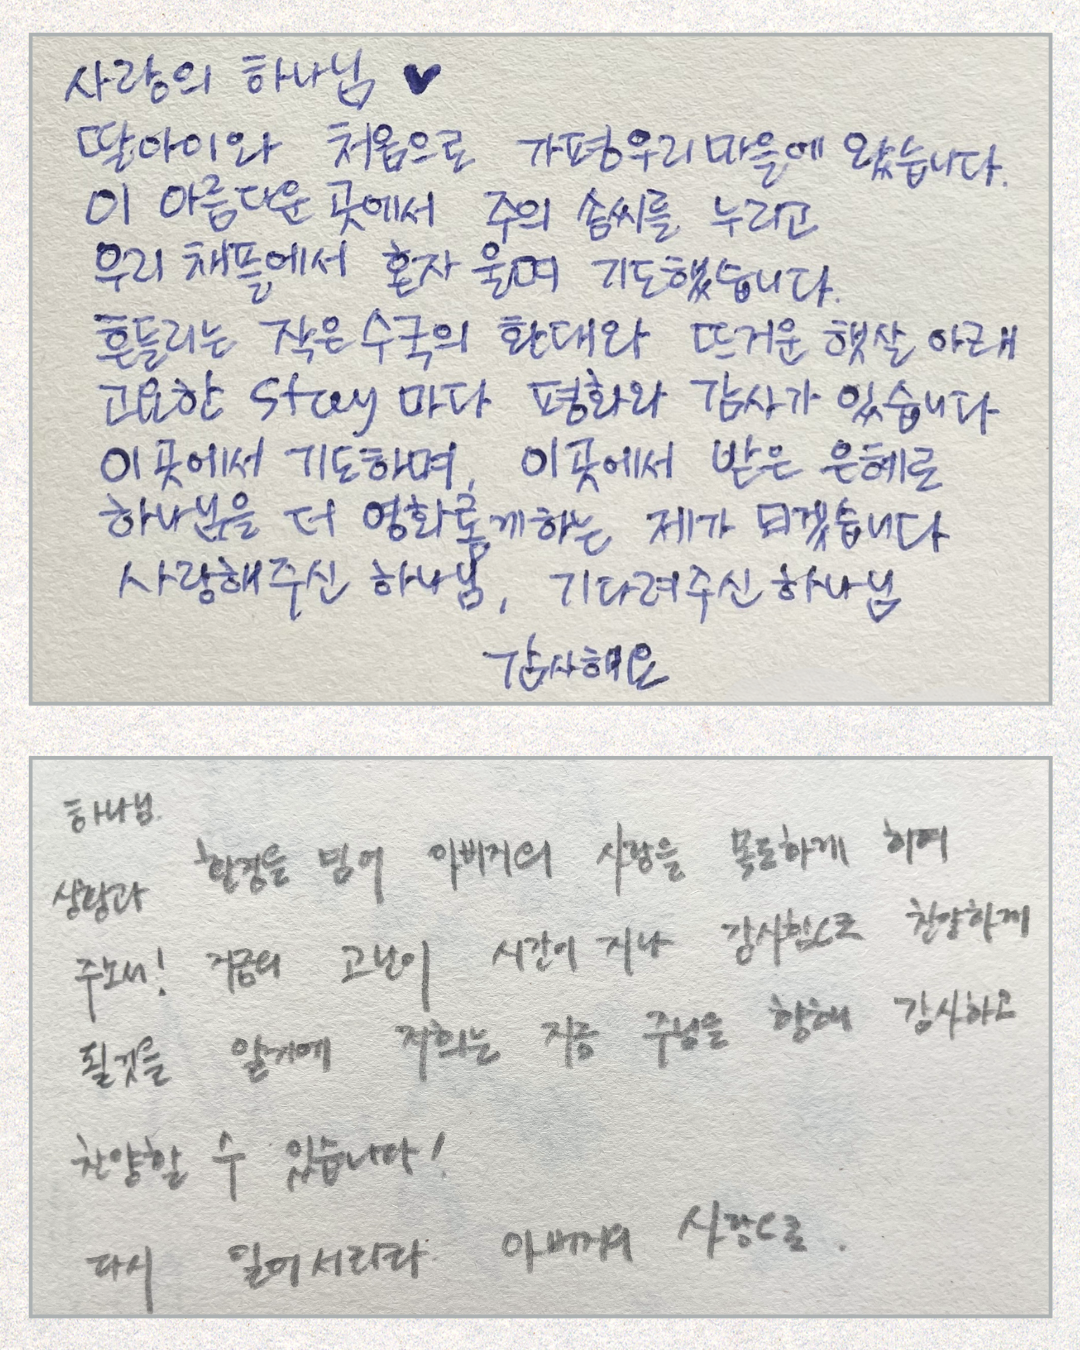 사랑의 하나님 ♥
딸아이와 처음으로 가평우리마을에 왔습니다.
이 아름다운 곳에서 주의 솜씨를 누리고
우리 채플에서 혼자 울며 기도했습니다.
흔들리는 작은 수국의 환대와 뜨거운 햇살 아래
고요한 stay 마다 평화와 감사가 있습니다
이곳에서 기도하며, 이곳에서 받은 은혜로
하나님을 더 영화롭게하는 제가 되겠습니다
사랑해주신 하나님, 기다려주신 하나님
감사해요
하나님.
상황과 환경을 넘어 아버지의 사랑을 목도하게 하여
주소서! 지금의 고난이 시간이 지나 감사함으로 찬양하게
될것을 알기에 저희는 지금 주님을 향해 감사하고
찬양할 수 있습니다!
다시 일어서리라 아버지의 사랑으로.